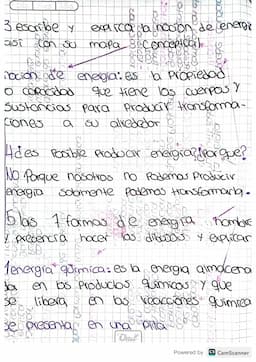 3 escribe y explica la noción de energía
así con su mapa conceptual
noción de energía: es la propiedad
o capacidad que tiene los cuerpos y
sustancias para producir transforma-
ciones a su alrededor
4¿es posible producir energía? ¿Porque?
No porque nosotros no podemos producir
energía solamente podemos transformarla.
5 las 7 formas de energía nombre
y presencia hacer los dibujos y explicar
1 energía química: es la energía almacena
da en los productos químicos y que
se libera en las reacciones química
se presenta en una pila
Powered by CS CamScanner